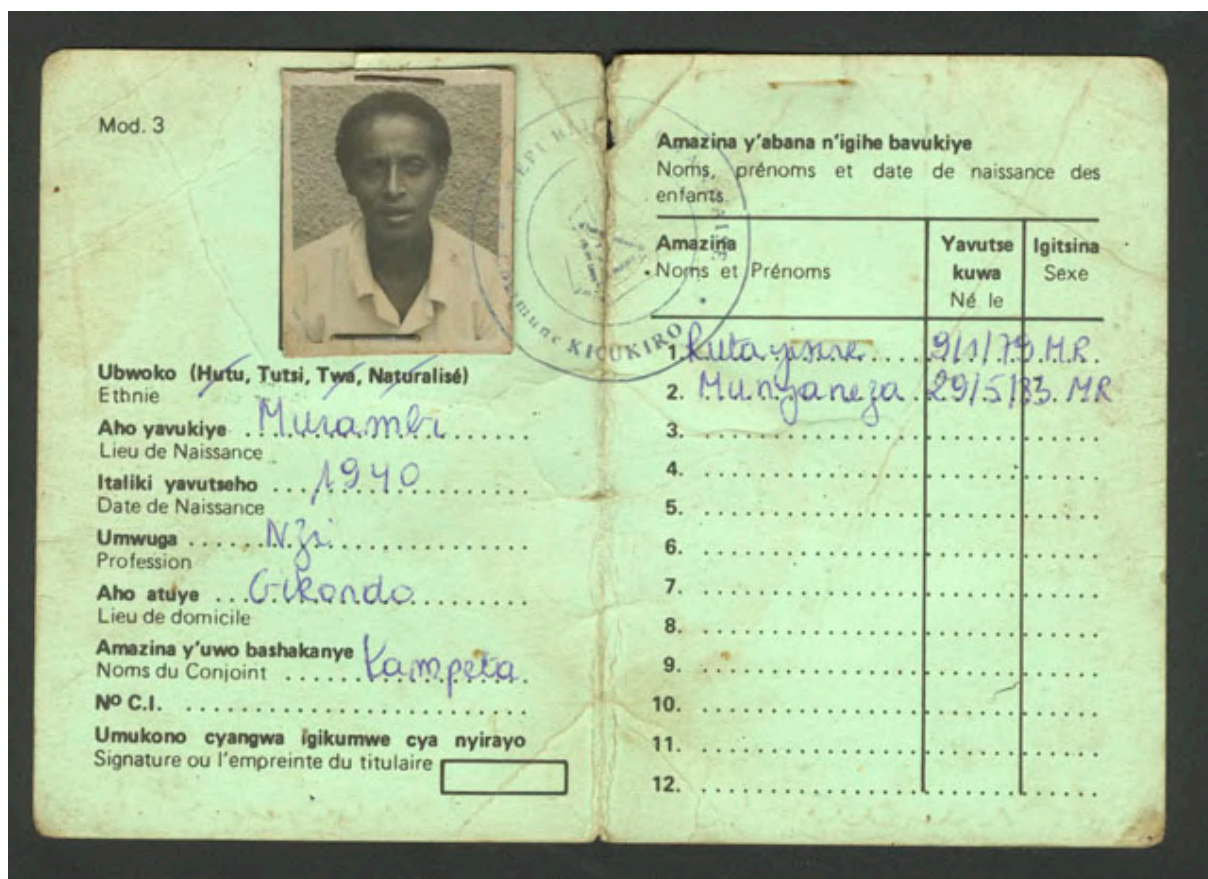 Mod. 3
Ubwoko (Hutu, Tutsi, Twa, Naturalisé)
Ethnie
Aho yavukiye . Murambi
Lieu de Naissance
Italiki yavutseho . 1940
Date de Naissance
Umwuga . Nzi
Profession
Aho atuye . Gikondo
Lieu de domicile
Amazina y'uwo bashakanye Kampeta
Noms du Conjoint
Nº C.I.
Umukono cyangwa igikumwe cya nyirayo
Signature ou l'empreinte du titulaire
Commune KICUKIRO
Amazina y'abana n'igihe bavukiye
Noms, prénoms et date de naissance des
enfants.
Amazina
Noms et Prénoms
Yavutse
kuwa
Né le
Igitsina
Sexe
1. Rutayisire 9/1/79 M.R.
2. Munyaneza 29/5/83 MR
3.
4.
5.
6.
7.
8.
9.
10.
11.
12.